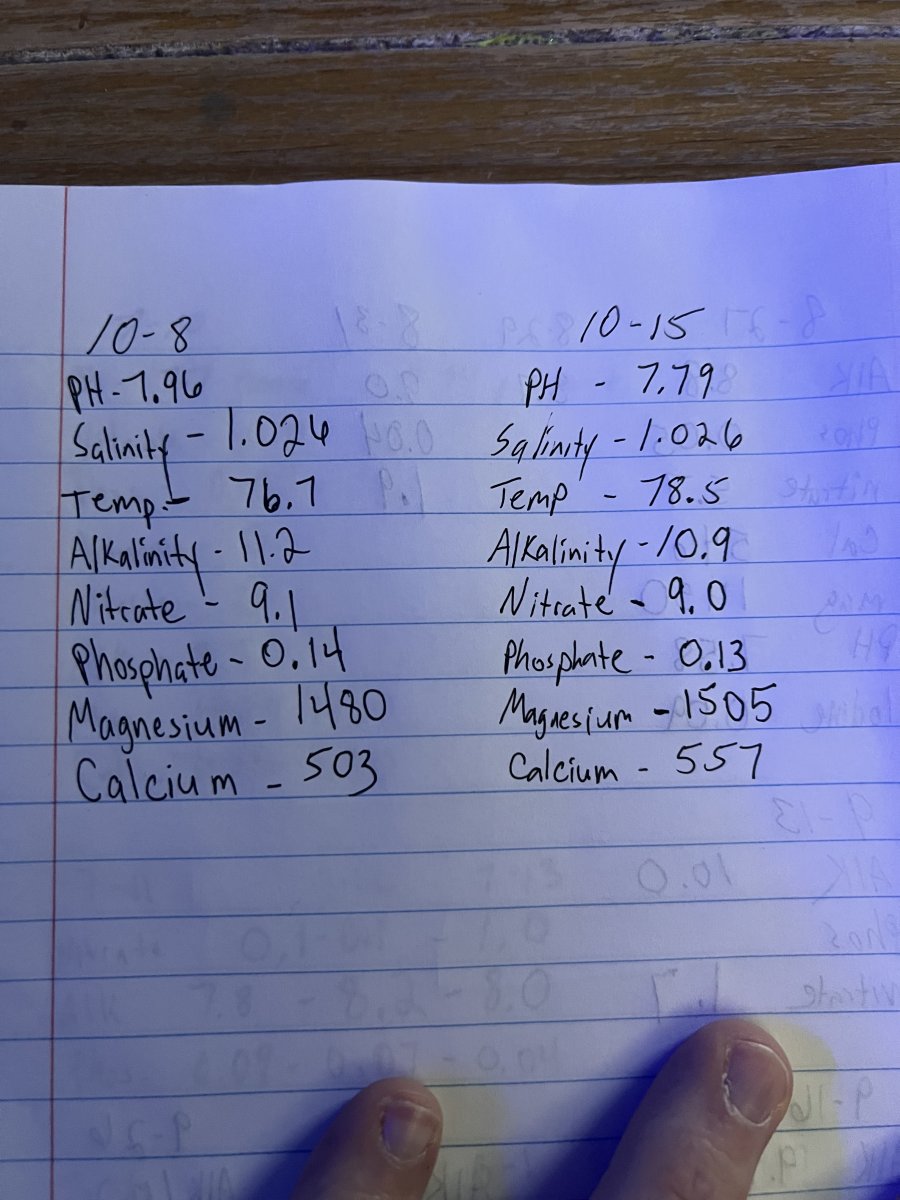 10-8
PH-7.96
Salinity - 1.026
Temp.- 76.7
Alkalinity - 11.2
Nitrate - 9.1
Phosphate - 0.14
Magnesium - 1480
Calcium - 503
10-15
PH - 7.79
Salinity - 1.026
Temp - 78.5
Alkalinity - 10.9
Nitrate - 9.0
Phosphate - 0.13
Magnesium - 1505
Calcium - 557